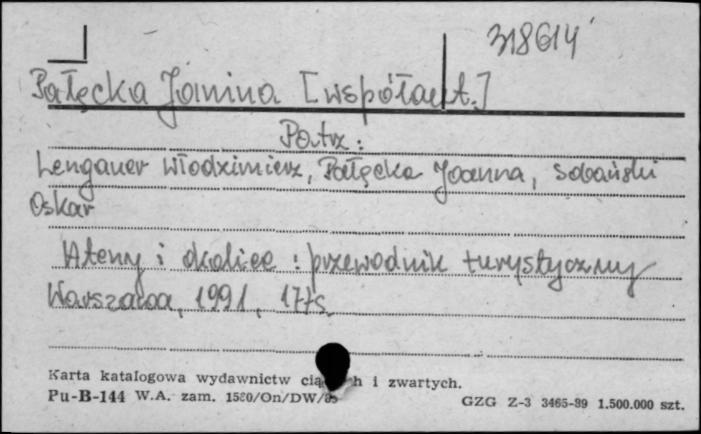 318614
Pałęcka Janina [współaut.]
Patrz:
Lengauer Włodzimierz, Pałęcka Joanna, Sobański
Oskar
Ateny i okolice : przewodnik turystyczny
Warszawa, 1991, 177s.
Karta katalogowa wydawnictw ciągłych i zwartych.
Pu-B-144 W.A. zam. 1580/On/DW/
GZG Z-3 3465-89 1.500.000 szt.